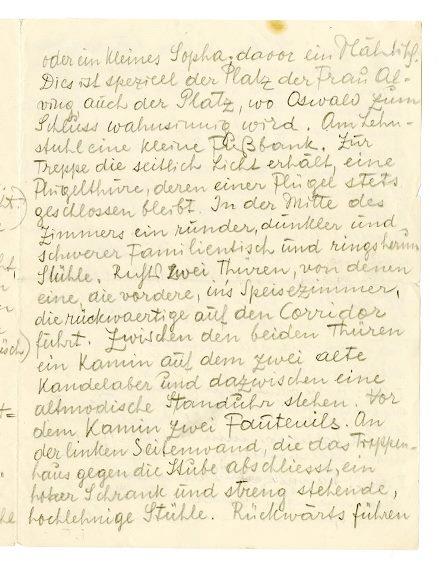 oder ein kleines Sopha, davor ein Nähtisch.
Dies ist speziell der Platz der Frau Al-
ving auch der Platz, wo Oswald zum
Schluss wahnsinnig wird. Am Lehn-
stuhl eine kleine Fußbank. Zur
Treppe die seitlich Licht erhält, eine
Flügelthüre, deren einer Flügel stets
geschlossen bleibt. In der Mitte des
Zimmers ein runder, dunkler und
schwerer Familientisch und ringsherum
Stühle. zwei Thüren, von denen
eine, die vordere, in's Speisezimmer,
die rückwaertige auf den Corridor
führt. Zwischen den beiden Thüren
ein Kamin auf dem zwei alte
Kandelaber und dazwischen eine
altmodische Standuhr stehen. Vor
dem Kamin zwei Fauteuils. An
der linken Seitenwand, die das Treppen-
haus gegen die Stube abschliesst, ein
hoher Schrank und streng stehende,
hochlehnige Stühle. Rückwärts führen